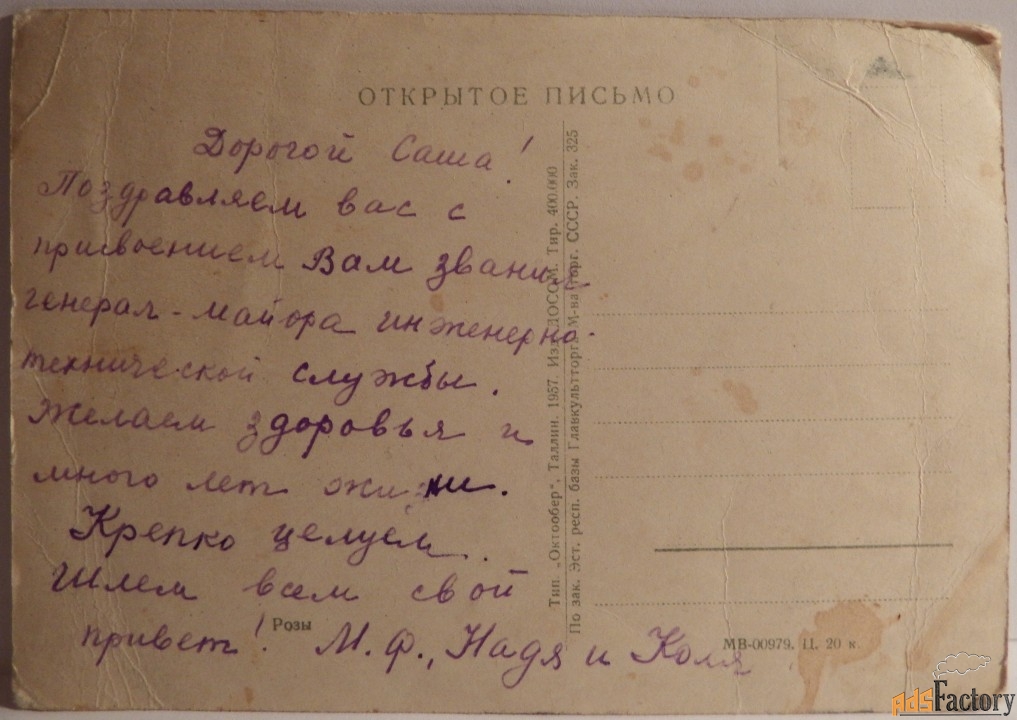 ОТКРЫТОЕ ПИСЬМО
Дорогой Саша!
Поздравляем вас с
присвоением Вам звания
генерал-майора инженерно-
технической службы.
Желаем здоровья и
много лет жизни.
Крепко целуем.
Шлем всем свой
привет! М.Ф., Надя и Коля
Розы
Тип. „Октообер“, Таллин. 1957. Изд. ЛОССХ. Тир. 400.000
По зак. Эст. респ. базы Главкультторга М-ва торг. СССР. Зак. 325
МВ-00979. Ц. 20 к.
AdsFactory